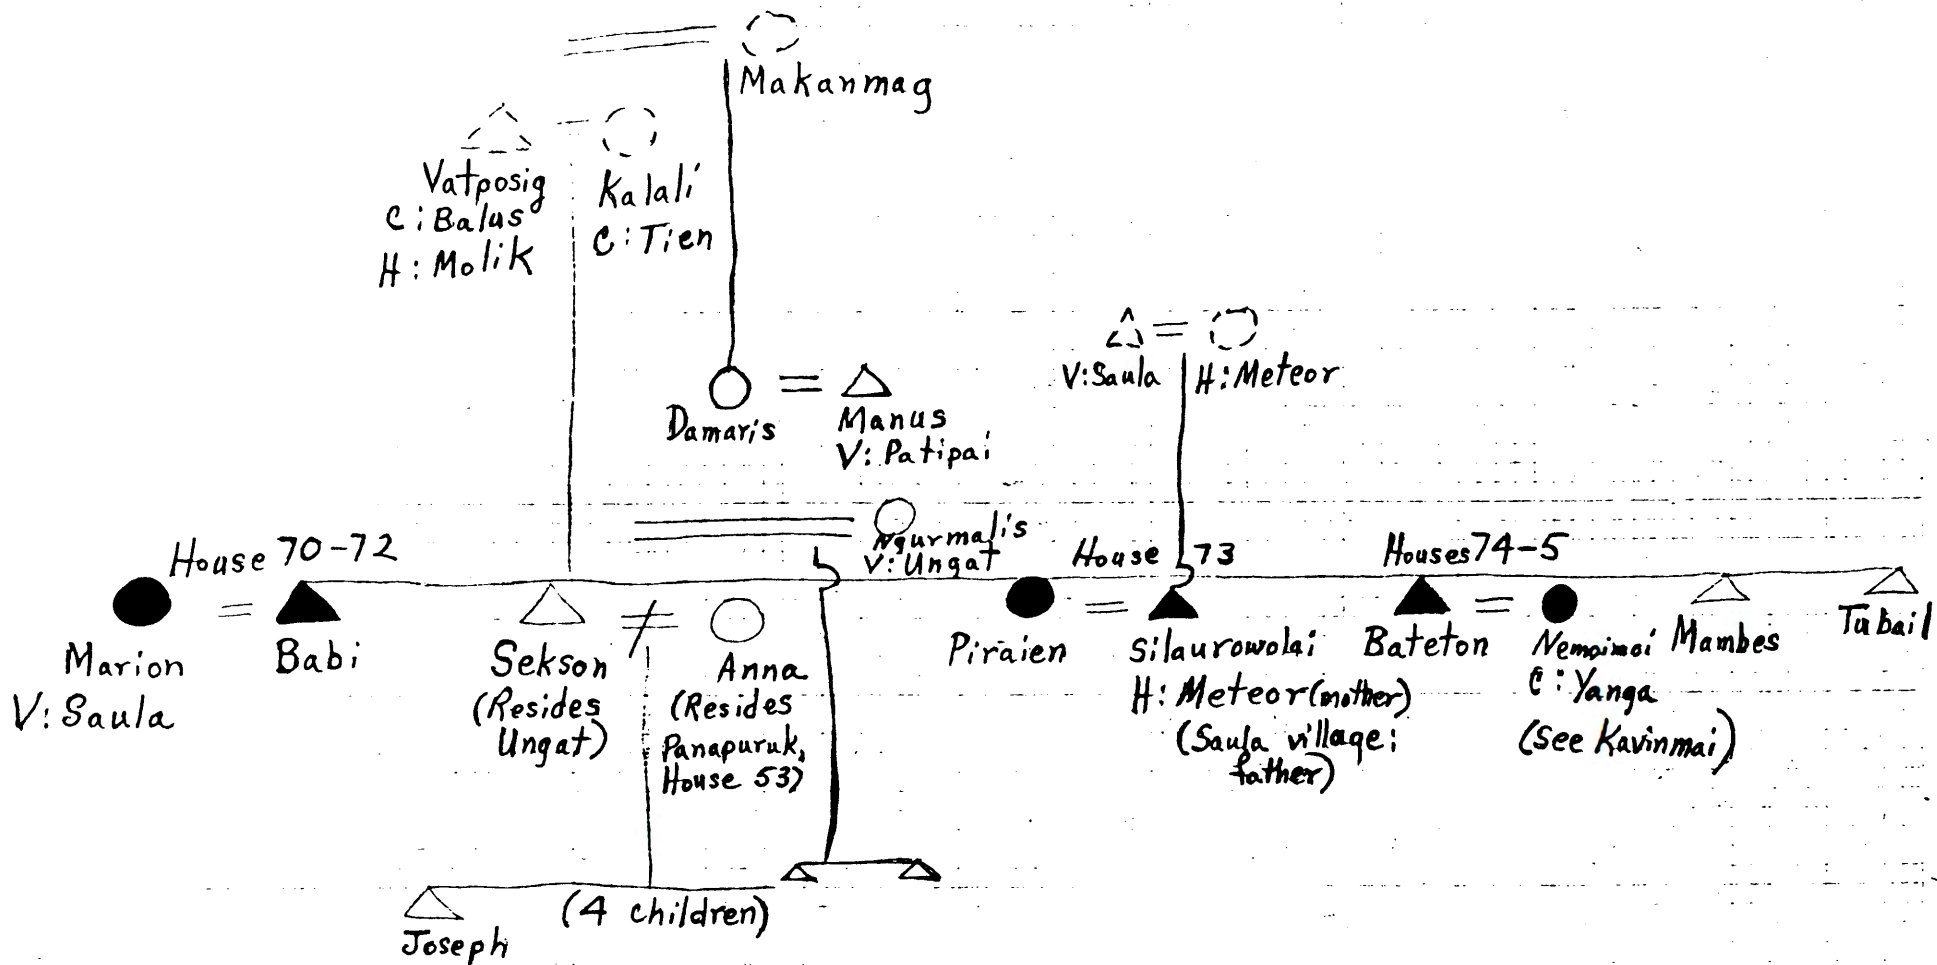 Makanmag
Vatposig
C: Balus
H: Molik
Kalali
C: Tien
V: Saula
H: Meteor
Damaris
Manus
V: Patipai
Ngurmalis
V: Ungat
House 70-72
House 73
Houses 74-5
Marion
V: Saula
Babi
Sekson
(Resides
Ungat)
Anna
(Resides
Panapuruk,
House 53)
Piraien
Silaurowolai
H: Meteor (mother)
(Saula village:
father)
Bateton
Nemoimoi
C: Yanga
(see Kavinmai)
Mambes
Tubail
Joseph
(4 children)